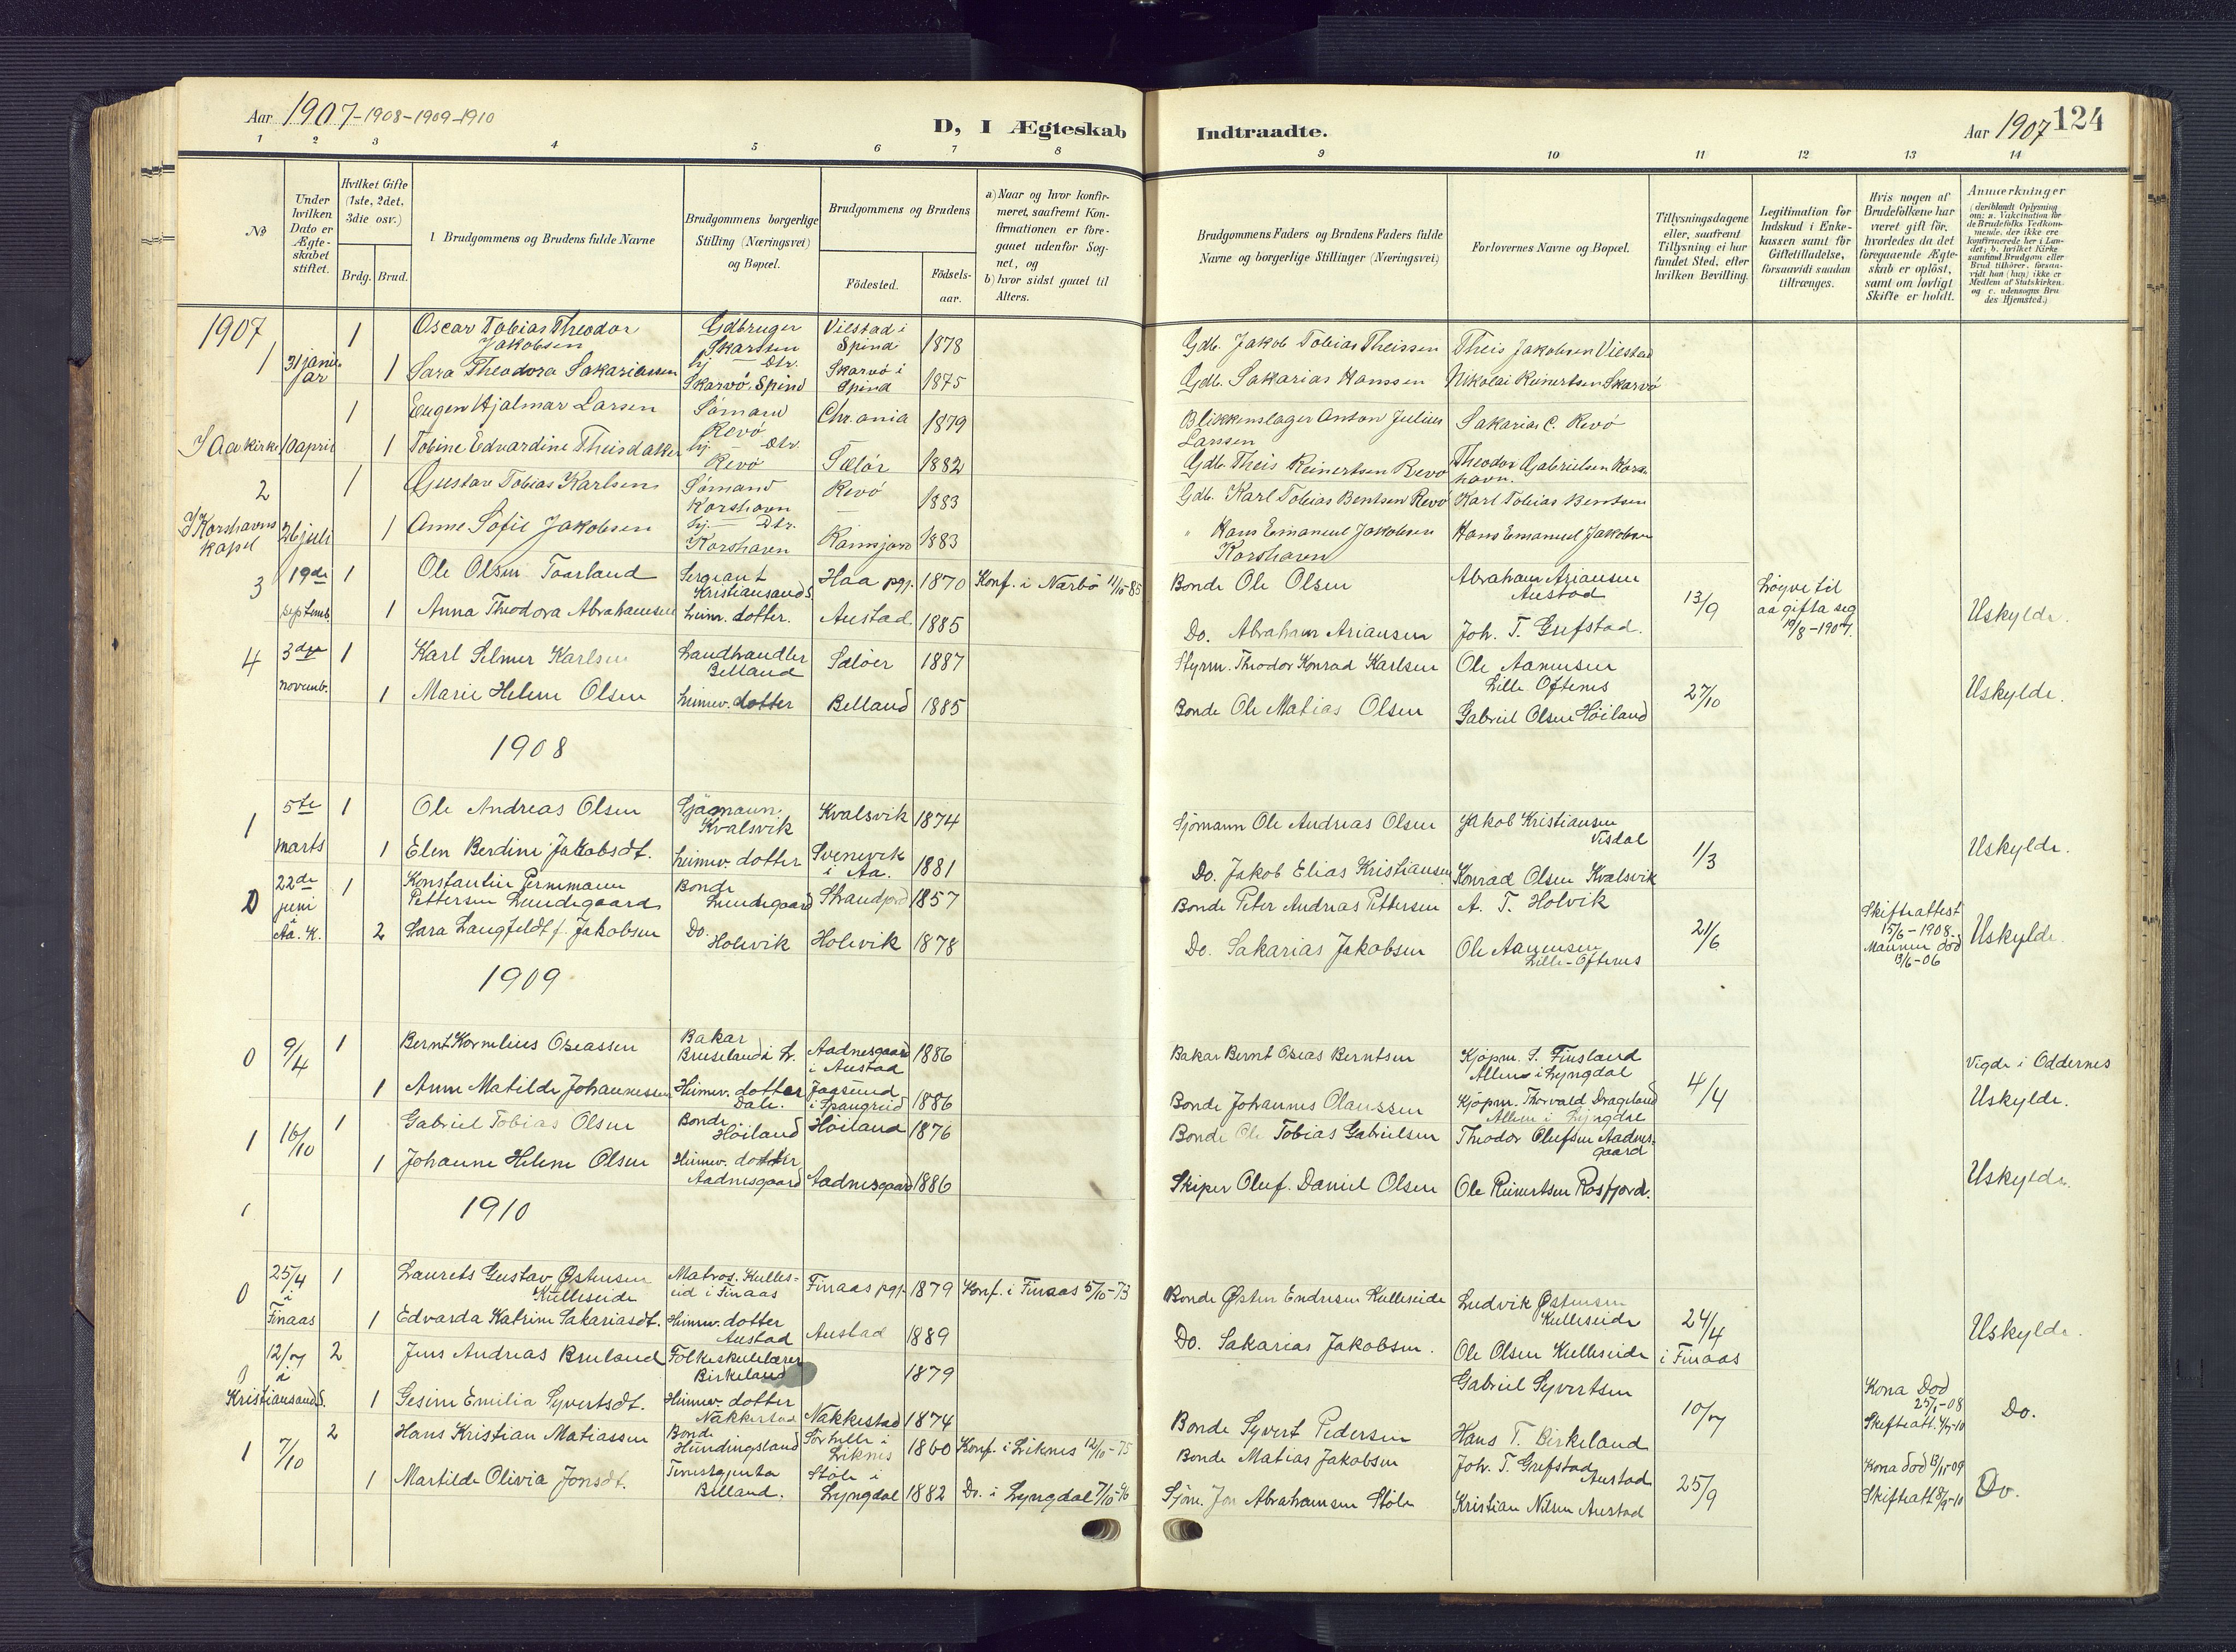 Aar 1907-1908-1909-1910
D, I Ægteskab
Indtraadte.
Aar 1907 124
1 2 3 4 5 6 7 8 9 10 11 12 13 14
No
Under hvilken Dato er Ægteskabet stiftet.
Hvilket Gifte (1ste, 2det, 3die osv.)
Brdg. Brud.
1 Brudgommens og Brudens fulde Navne
Brudgommens borgerlige Stilling (Næringsvei) og Bopæl.
Brudgommens og Brudens
Fødested.
Fødsels-aar.
a) Naar og hvor konfirmeret, saafremt Konfirmationen er foregaaet udenfor Sognet, og
b) hvor sidst gaaet til Alters.
Brudgommens Faders og Brudens Faders fulde Navne og borgerlige Stillinger (Næringsvei)
Forlovernes Navne og Bopæl.
Tillysningsdagene eller, saafremt Tillysning ei har fundet Sted, efter hvilken Bevilling.
Legitimation for Indskud i Enkekassen samt for Giftetilladelse, forsaavidt saadan tiltrænges.
Hvis nogen af Brudefolkene har været gift før, hvorledes da det foregaaende Ægteskab er opløst, samt om lovligt Skifte er holdt.
Anmærkninger (deriblandt Oplysning om: a. Vakcination for de Brudefolks Vedkommende, der ikke ere konfirmerede her i Landet; b. hvilket Kirkesamfund Brudgom eller Brud tilhører, forsaavidt han (hun) ikke er Medlem af Statskirken og c. udensogns Brudes Hjemsted.)
1907
1 31 januar 1 Oscar Tobias Theodor Jakobsen Gdbruger Skarssen Vilstad i Spind 1878 Gdb. Jakob Tobias Theissen Theis Jakobsen Vilstad
1 Sara Theodora Sakariassen hj Dtr. Skarvø. Spind Skarvø i Spind 1875 Gdb. Sakarias Hanssen Nikolai Reinertsen Skarvø
1 Eugen Hjalmar Larsen Sømand Revø Chr.ania 1879 Blikkenslager Anton Julius Larssen Sakarias C. Revø
I Aa kirke 10 april 1 Tobine Edvardine Theisdatter hj Dtr. Revø Sælør 1882 Gdb. Theis Reinertsen Revø Theodor Gabrielsen Korshavn.
2 1 Gustav Tobias Karlsen Sømand Korshavn Revø 1883 Gdb. Karl Tobias Bentsen Revø Karl Tobias Bentsen
I Korshavns kapel 26 juli 1 Anne Sofie Jakobsen hj. Dtr. Korshavn 1883 " Hans Emanuel Jakobsen Korshavn Hans Emanuel Jakobsen
3 19de septemb. 1 Ole Olsen Taarland Sergeant Kristiansand S Haa pgj. 1870 Konf. i Nærbø 11/10-85 Bonde Ole Olsen Abraham Ariansen Austad 13/9 Løyve til aa gifta seg 19/8-1907.
1 Anna Theodora Abrahamsen heim. dotter. Austad 1885 Do. Abraham Ariansen Joh. T. Grefstad. Uskylde.
4 3dje novemb. 1 Karl Selmer Karlsen Landhandler Belland Sælöer 1887 Styrm. Theodor Konrad Karlsen Ole Aanensen Lille Oftenes 27/10
1 Marie Helene Olsen heimev. dotter Belland 1885 Bonde Ole Matias Olsen Gabriel Olsen Höiland Uskylde.
1908
1 5te marts 1 Ole Andreas Olsen Sjømann. Kvalsvik Kvalsvik 1874 Sjömann Ole Andreas Olsen Jakob Kristiansen Visdal 1/3
1 Elen Berdine Jakobsdt. heimev dotter Svenevik i Aa. 1881 Do. Jakob Elias Kristiansen Konrad Olsen Kvalsvik Uskylde.
22de juni i Aa. K. 1 Konstantin Pettersen Lundegaard Bonde Lundegaard 1857 Bonde Peter Andreas Pettersen A. T. Holvik 21/6 Skifteattest 15/6-1908. Mannen död 13/6-06
2 Sara Langfeldt f. Jakobsen Do. Holevik Holevik 1878 Do. Sakarias Jakobsen Ole Aanensen Lille-Oftenes Uskylde.
1909
0 9/4 1 Bernt Kornelius Oseassen Bakar Bruseland i L. Aadnesgaard i Austad 1886 Bakar Bernt Oseas Berntsen Kjøpm. S. Finsland Alleen i Lyngdal 4/4 Vigde i Oddernes
1 Anne Matilde Johannessen Heimev. dotter Dale. Jaasund i Spangreid 1886 Bonde Johannes Olaussen Kjøpm. Thorvald Drageland Alleen i Lyngdal Uskylde.
1 16/10 1 Gabriel Tobias Olsen Bonde Höiland Höiland 1876 Bonde Ole Tobias Gabrielsen Theodor Olufsen Aadnesgaard
1 Johanne Helene Olsen Heimev. dotter Aadnesgaard Aadnesgaard 1886 Skiper Oluf. Daniel Olsen Ole Reinertsen Rosfjord. Uskylde.
1910
0 25/4 i Finaas 1 Laurets Gustav Østensen Kulleseide Matros. Kulleseid i Finaas Finaas pgj. 1879 Konf. i Finaas 5/10-73 Bonde Østen Endresen Kulleseide Ludvik Østensen Kulleseide 24/4 i Finaas
1 Edvarda Katrine Sakariasdt. Heimev. dotter Austad Austad 1889 Do. Sakarias Jakobsen. Ole Olsen Kulleseide Uskylde.
0 12/7 i Kristiansand S. 2 Jens Andreas Bruland Folkeskulelærer Birkeland 1879 Gabriel Syvertsen 10/7 Kona Död 25/1-08 Skifteatt. 4/7-10
1 Gesine Emilia Syvertsdt. Heimev. dotter Nakkestad Nakkestad 1874 Bonde Syvert Pedersen Hans T. Birkeland Do.
1 7/10 2 Hans Kristian Matiassen Bonde Hundingsland i Liknes 1860 Konf. i Liknes 12/10-75 Bonde Matias Jakobsen Joh. T. Grefstad Austad 25/9 Kona død 13/11-09 Skifteatt 8/9-10
1 Martilde Olivia Jonsdt. Tenestgjenta Belland. Støle i Lyngdal 1882 Do. i Lyngdal 7/10-96 Sjøm. Jon Abrahamsen Støle Kristian Nilsen Austad Do.